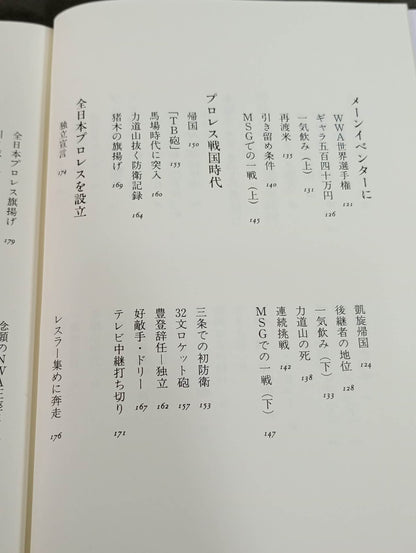 メーンイベンターに
WWA世界選手権 121
凱旋帰国 124
ギャラ五百四十万円 126
後継者の地位 128
一気飲み（上） 131
一気飲み（下） 133
再渡米 135
力道山の死 138
引き留め条件 140
連続挑戦 142
MSGでの一戦（上） 145
MSGでの一戦（下） 147
プロレス戦国時代
帰国 150
三条での初防衛 153
「TB砲」 155
32文ロケット砲 157
馬場時代に突入 160
豊登辞任―独立 162
力道山抜く防衛記録 164
好敵手・ドリー 167
猪木の旗揚げ 169
テレビ中継打ち切り 171
全日本プロレスを設立
独立宣言 174
レスラー集めに奔走 176
全日本プロレス旗揚げ 179
念願のNWA王座